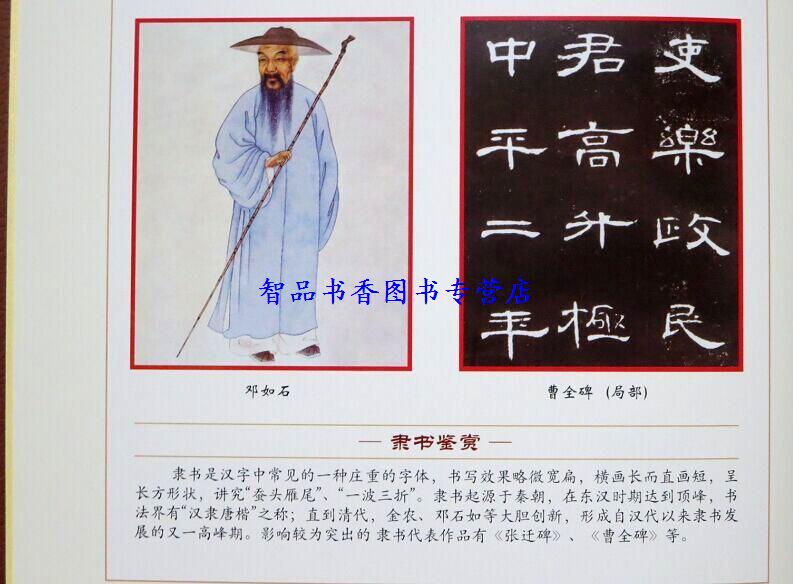 吏樂政民
君高升極
中平二年
智品书香图书专营店
邓如石
曹全碑 (局部)
— 隶书鉴赏 —
隶书是汉字中常见的一种庄重的字体，书写效果略微宽扁，横画长而直画短，呈
长方形状，讲究“蚕头雁尾”、“一波三折”。隶书起源于秦朝，在东汉时期达到顶峰，书
法界有“汉隶唐楷”之称；直到清代，金农、邓石如等大胆创新，形成自汉代以来隶书发
展的又一高峰期。影响较为突出的 隶书代表作品有《张迁碑》、《曹全碑》等。